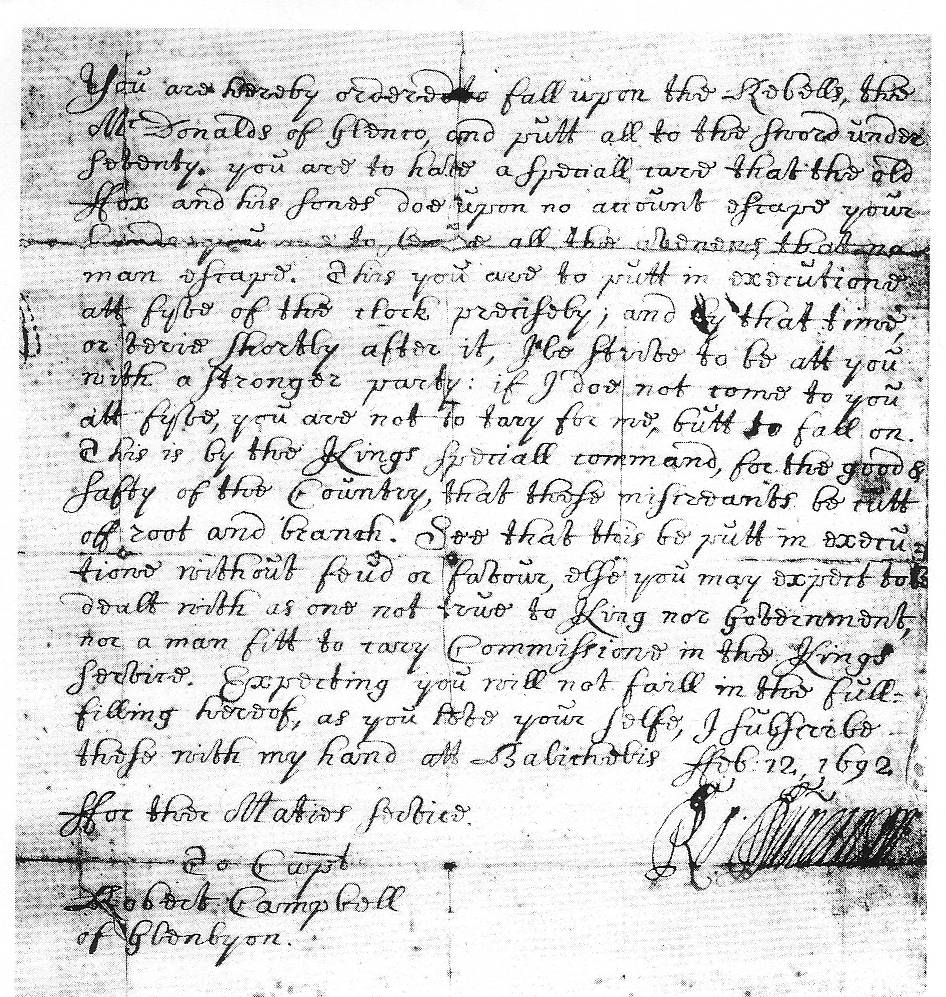 You are hereby ordered to fall upon the Rebells, the
McDonalds of Glenco, and putt all to the sword under
seventy. you are to have a speciall care that the old
ffox and his sones doe upon no account escape your
hands you are to secure all the avenues that no
man escape. This you are to putt in executione
att fyve of the clock precisely; and by that time,
or verie shortly after it, I'le strive to be att you
with a stronger party: if I doe not come to you
att fyve, you are not to tary for me, butt to fall on.
This is by the Kings speciall command, for the good &
safty of the Country, that these miscreants be cutt
off root and branch. See that this be putt in execu
tione without feud or favour, else you may expect to be
dealt with as one not true to King nor Government,
nor a man fitt to cary Commissione in the Kings
service. Expecting you will not faill in the full-
filling hereof, as you love your selfe, I subscribe
these with my hand att Balicholis Feb: 12, 1692
ffor their Maties service.
To Capt
Robert Campbell
of Glenlyon.